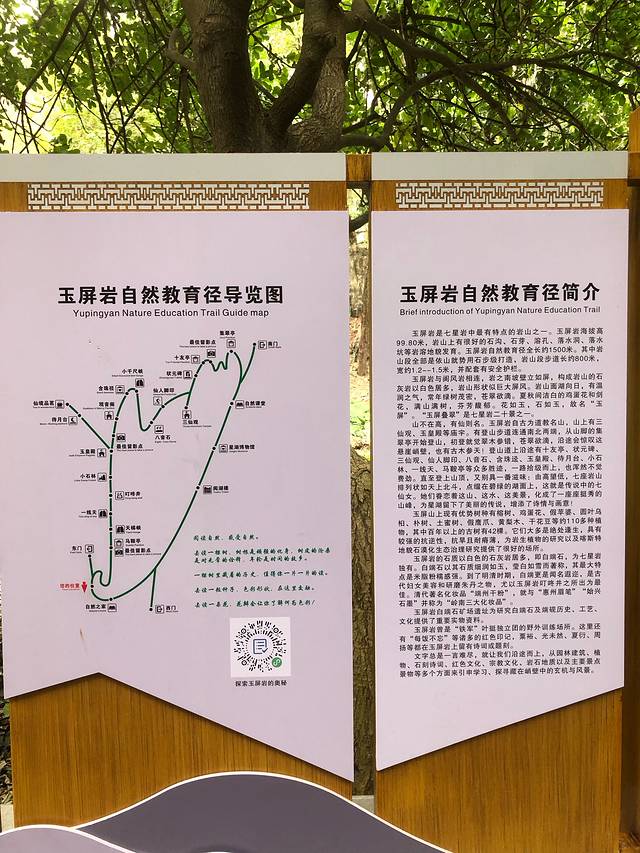 玉屏岩自然教育径导览图
Yupingyan Nature Education Trail Guide map
翠琴亭
南门
最佳留影点
十友亭
小千尺幢
状元碑
含珠径
仙人脚印
仙境品茗
观音阁
三仙观
自然课堂
待月台
最佳留影点
八音石
玉皇殿
星湖博物馆
小石林
阆湖楼
叮咚井
一线天
天桥峡
东门
马鞍亭
最佳留影点
您的位置
自然之家
西门
阅读自然,感受自然。
去读一粒籽子,色彩形状,在这里发动。
探索玉屏岩的奥秘
玉屏岩自然教育径简介
Brief introduction of Yupingyan Nature Education Trail
玉屏岩是七星岩中最有特点的岩山之一。玉屏岩海拔高
99.80米,岩山上有很好的石沟、石芽、溶孔、落水洞、落水
坑等岩溶地貌发育。玉屏岩自然教育径全长约1500米。其中岩
山段全部是依山就势用石步级打造,岩山步道长约800米,
宽约1.2--1.5米,并配套有安全护栏。
玉屏岩与阆风岩相连,岩之南坡壁立如屏,构成岩山的石
灰岩以白色居多,岩山形状似巨大屏风。岩山面湖向日,有温
润之气,常年绿树茂密,苍翠欲滴。夏秋间洁白的鸡蛋花和剑
花,满山满树,芬芳馥郁。花如玉,石如玉,故名“玉
屏”。“玉屏叠翠”是七星岩二十景之一。
山不在高,有仙则名。玉屏岩自古为道教名山,山上有三
仙观、玉皇殿等庙宇。有登山步道连通南北两端,从山脚的集
翠亭开始登山,初登就觉翠木参错,苍翠欲滴,沿途会惊叹这
悬崖峭壁,也有古木参天!登山道上沿途有十友亭、状元碑、
三仙观、仙人脚印、八音石、含珠迳、玉皇殿、待月台、小石
林、一线天、马鞍亭等众多胜迹,一路拾级而上,也浑然不觉
费劲。直至登上山顶,又别具一番滋味:由高望低,七座岩山
排列状如天上北斗,点缀在碧绿的湖面上,这就是传说中的七
仙女。她们眷恋着这山、这水、这美景,化成了一座座挺秀的
山峰,为星湖留下了美丽的传说,增添了诗情与画意!
玉屏山上现有优势树种有榕树、鸡蛋花、假苹婆、圆叶乌
桕、朴树、土蜜树、假鹰爪、黄梨木、千花豆等约110多种植
物,其中百年以上的古树有42棵。它们大多是绝处逢生,具有
较强的抗逆性,抗旱且耐瘠薄,为岩生植物的研究以及喀斯特
地貌石漠化生态治理研究提供了很好的场所。
玉屏岩的石质以白色的石灰岩居多,即白端石,为七星岩
独有。白端石以其石质细润如玉,莹白如雪而著称,其最大特
点是米脂粉糯感强。到了明清时期,白端更是闻名遐迩,是古
代妇女美容和研磨朱丹之物,尤以玉屏岩叮咚井之所出为最
佳。清代著名化妆品“端州干粉”,就与“惠州眉笔”“始兴
石墨”并称为“岭南三大化妆品”。
玉屏岩白端石矿场遗址为研究白端石及端砚历史、工艺、
文化提供了重要实物资料。
玉屏岩曾是“铁军”叶挺独立团的野外训练场所。这里还
有“每饭不忘”等诸多的红色印记,粟裕、光未然、夏衍、周
扬等都在玉屏岩上留有诗词或题刻。
文字总是一言难尽,就让我们沿途而上,从园林建筑、植
物、石刻诗词、红色文化、宗教文化、岩石地质以及主要景点
景物等多个方面来引申学习、探寻藏在峭壁中的玄机与风景。